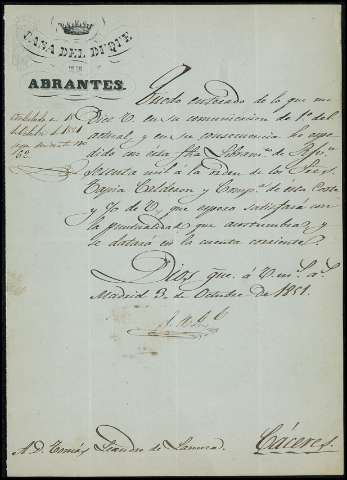 CASA DEL DUQUE
DE
ABRANTES.
Contestada en
de Octubre de 1851
Quedo enterado de lo que me
dice V. en su comunicacion de 1º del
actual, y en su consecuencia he espe-
dido con esta fha libramto. de
sesenta mil á la orden de los Sres.
Tapia Calderon y Compª. de esta Corte
y de V. que espero satisfará con
la puntualidad que acostumbra, y
le dataré en la cuenta corriente.
Dios gue. á V. ms. as.
Madrid 3 de Octubre de 1851.
A D. Tomás Leandro de
Cáceres.